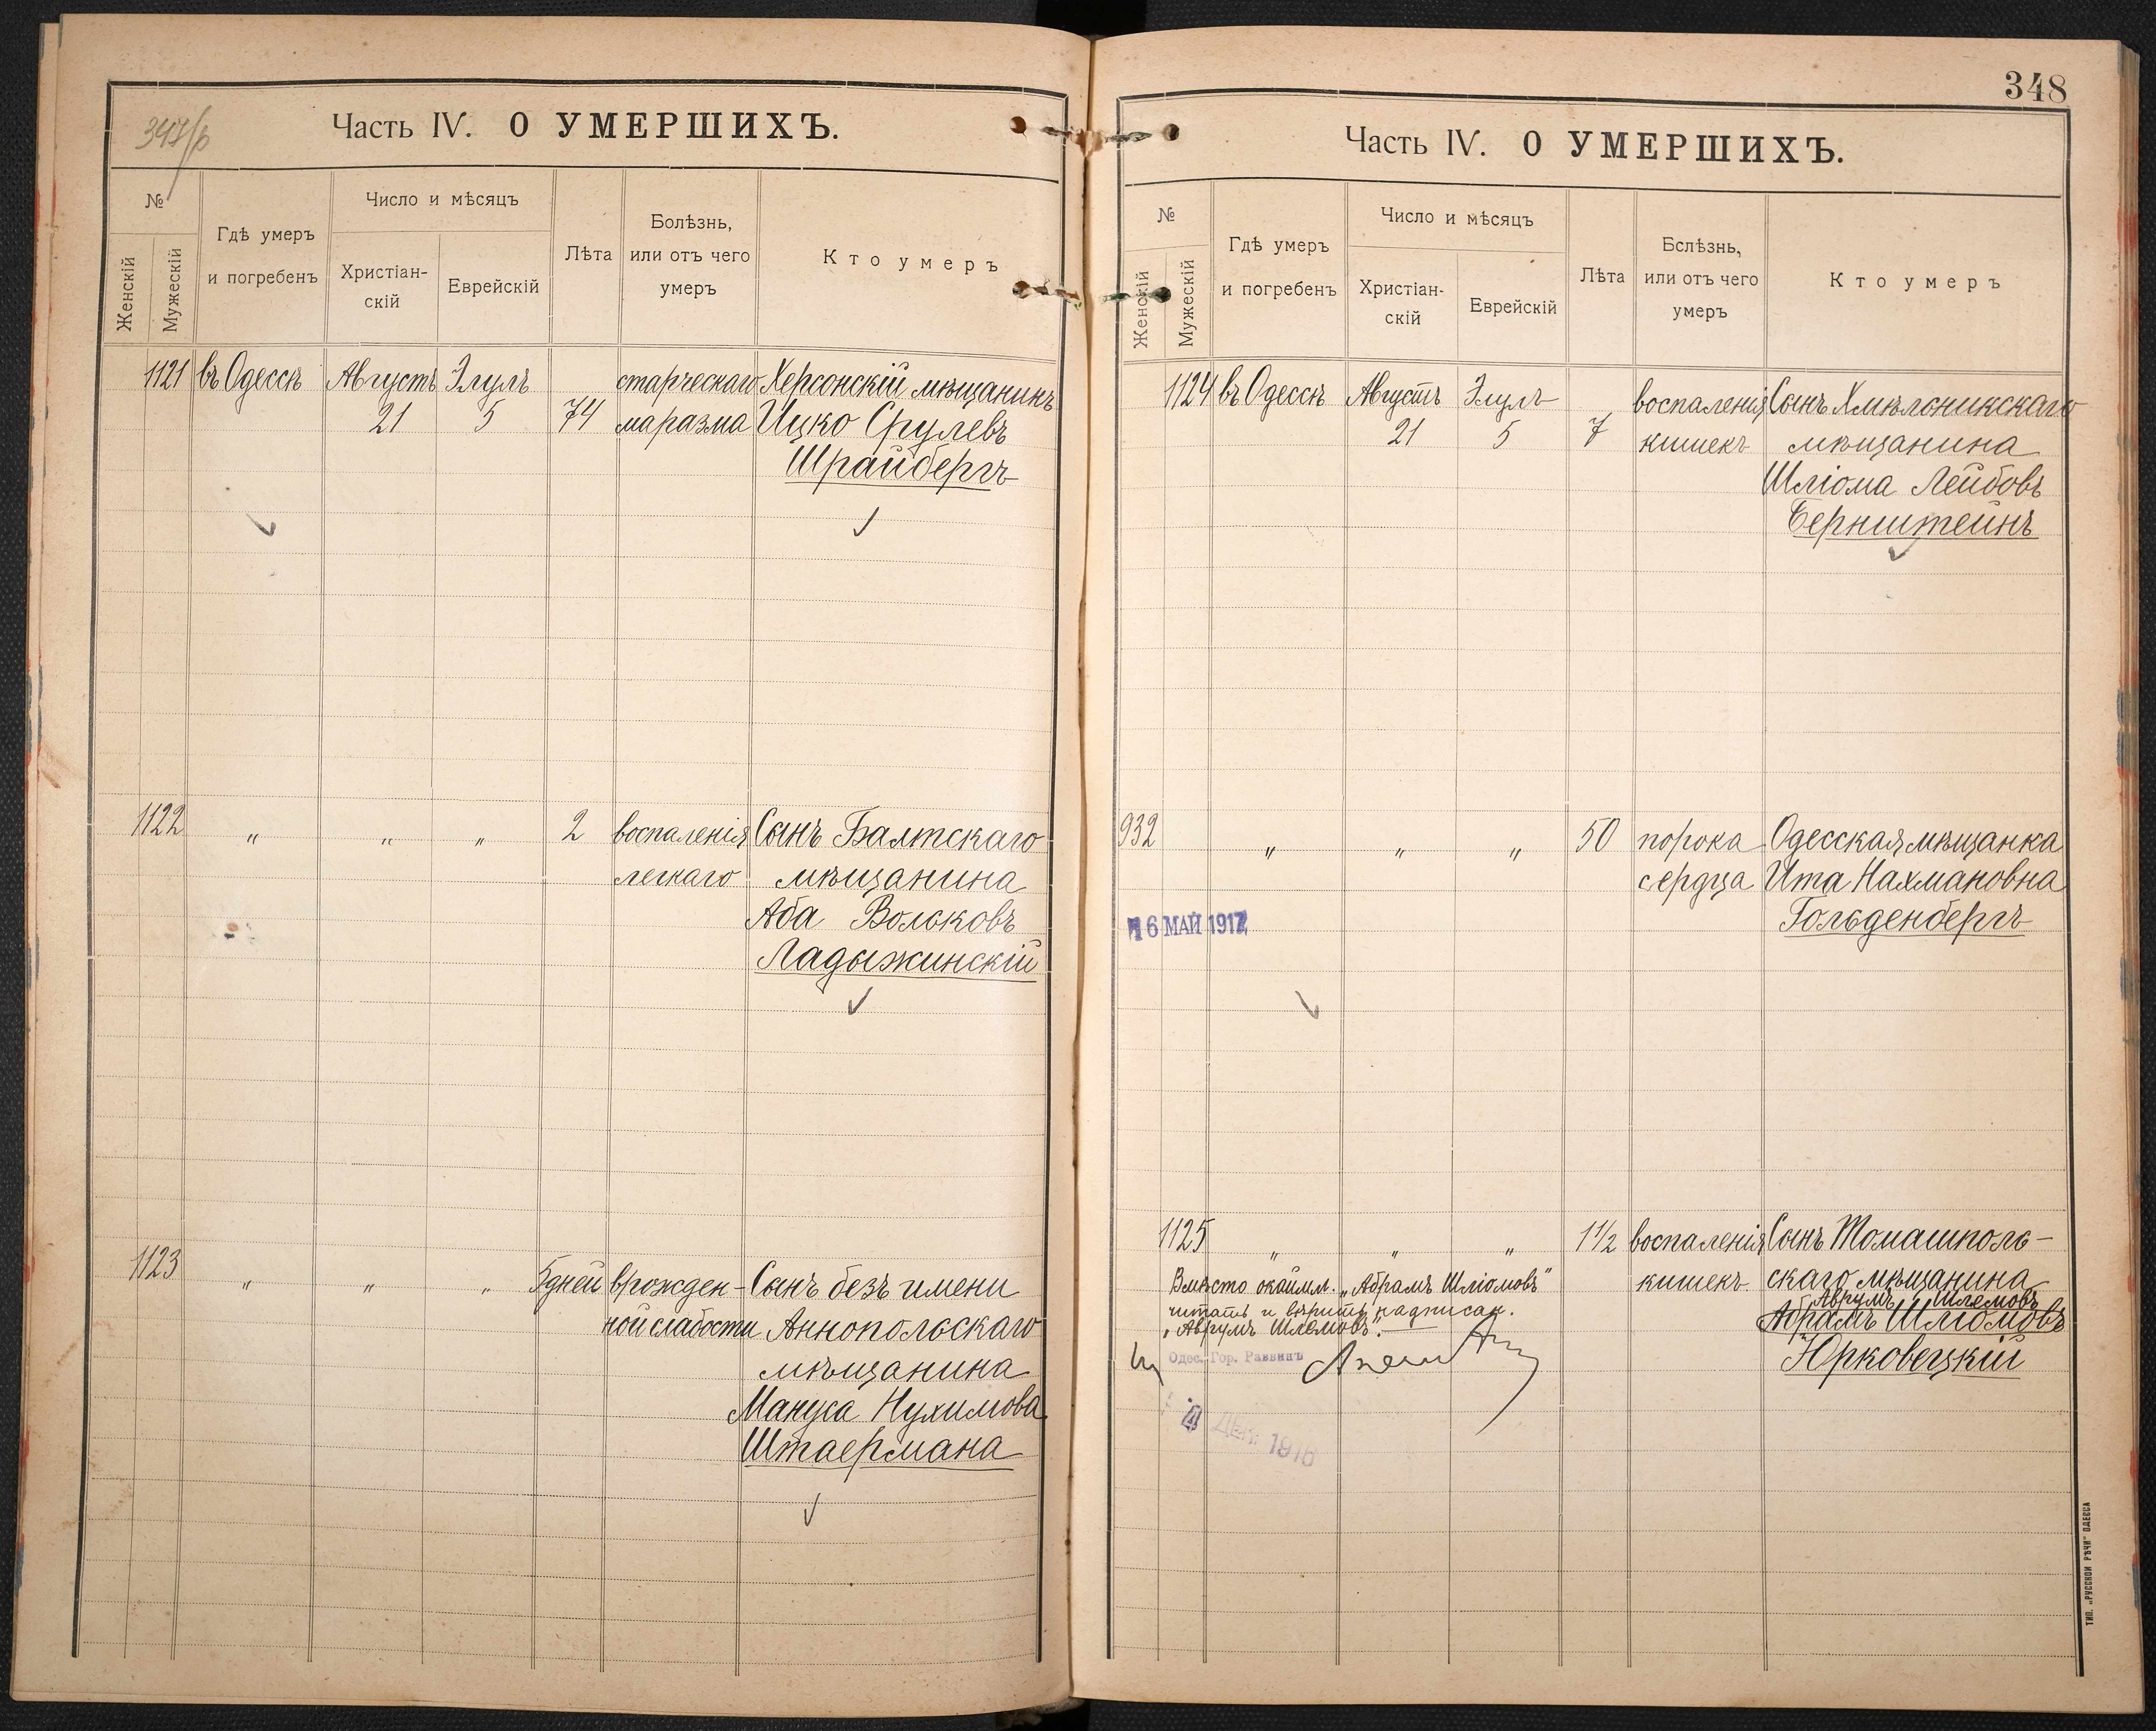 347/б
Часть IV. О УМЕРШИХЪ.
№
Женскій
Мужескій
Гдѣ умеръ
и погребенъ
Число и мѣсяцъ
Христіан-
скій
Еврейскій
Лѣта
Болѣзнь,
или отъ чего
умеръ
Кто умеръ
1121 въ Одессѣ Августъ Элулъ старческаго Херсонскій мѣщанинъ
21 5 74 маразма Ицко Срулевъ
Шрайбергъ
1122 „ „ „ 2 воспаленія Сынъ Балтскаго
легкаго мѣщанина
Аба Вольковъ
Ладыжинскій
1123 „ „ „ 5 дней врожден- Сынъ безъ имени
ной слабости Аннопольскаго
мѣщанина
Мануса Нухимова
Штаермана
348
Часть IV. О УМЕРШИХЪ.
№
Женскій
Мужескій
Гдѣ умеръ
и погребенъ
Число и мѣсяцъ
Христіан-
скій
Еврейскій
Лѣта
Бслѣзнь,
или отъ чего
умеръ
Кто умеръ
1124 въ Одессѣ Августъ Элулъ воспаленія Сынъ Хмѣлникскаго
21 5 7 кишекъ мѣщанина
Шліома Лейбовъ
Бернштейнъ
932 „ „ „ 50 порока Одесская мѣщанка
сердца Ита Нахмановна
16 МАЙ 1917 Гольденбергъ
1125 „ „ „ 1½ воспаленія Сынъ Томашполь-
Вмѣсто окаймл. „Абрамъ Шліомовъ" кишекъ скаго мѣщанина
читать и вѣрить надписан. Аврумъ Шлемовъ
„Аврумъ Шлемовъ". Абрамъ Шліомовъ
Одес. Гор. Раввинъ Юрковецкій
4 ДЕК 1916
ТИП. „РУССКОЙ РѢЧИ" ОДЕССА